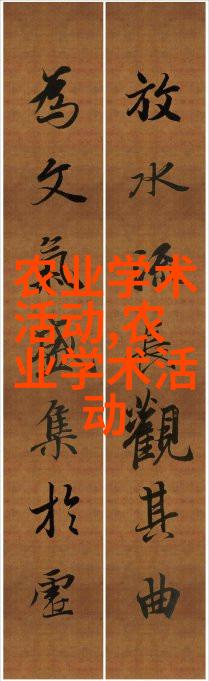 放水觀其曲
為文氣集於虛
农业学术
活动,农
业学术活
动